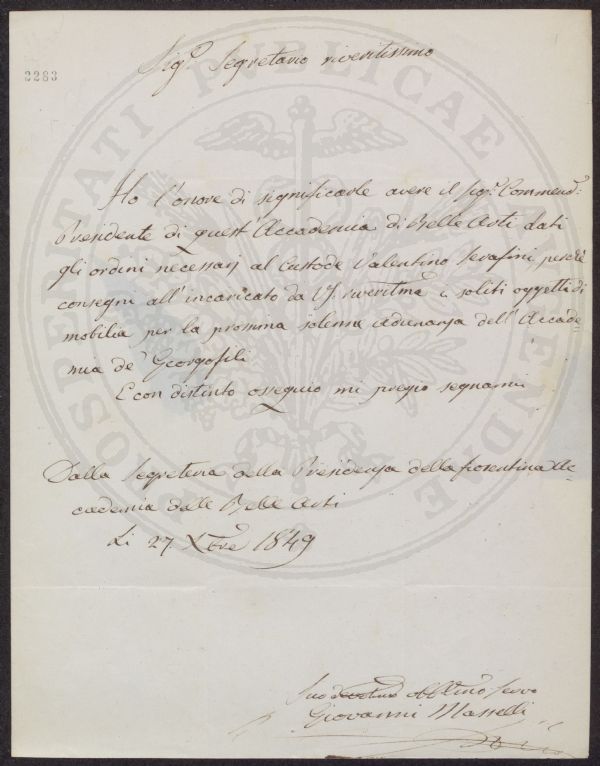 2283
Sig.r Segretario riveritissimo
Ho l'onore di significarle avere il Sig.r Commend.
Presidente di quest'Accademia di Belle Arti dati
gli ordini necessarj al Custode Valentino Serafini, perchè
consegni all'incaricato da VS. riveritma i soliti oggetti di
mobilia per la prossima solenne adunanza dell'Accade=
mia de' Georgofili
E con distinto ossequio mi pregio segnarmi
Dalla Segreteria della Presidenza della fiorentina Ac=
cademia delle Belle Arti
Li 27. Xbre 1849
Suo Obblmo Servo
Giovanni Masselli
PROSPERITATI PUBLICAE AUGENDAE